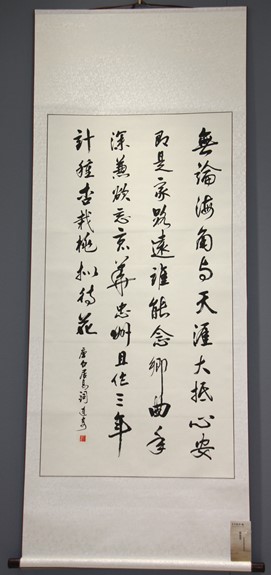 無論海角与天涯大抵心安
即是家路遠誰能念鄉曲年
深兼欲忘京華忠州且作三年
計種杏栽桃拟待花
唐白居易詞